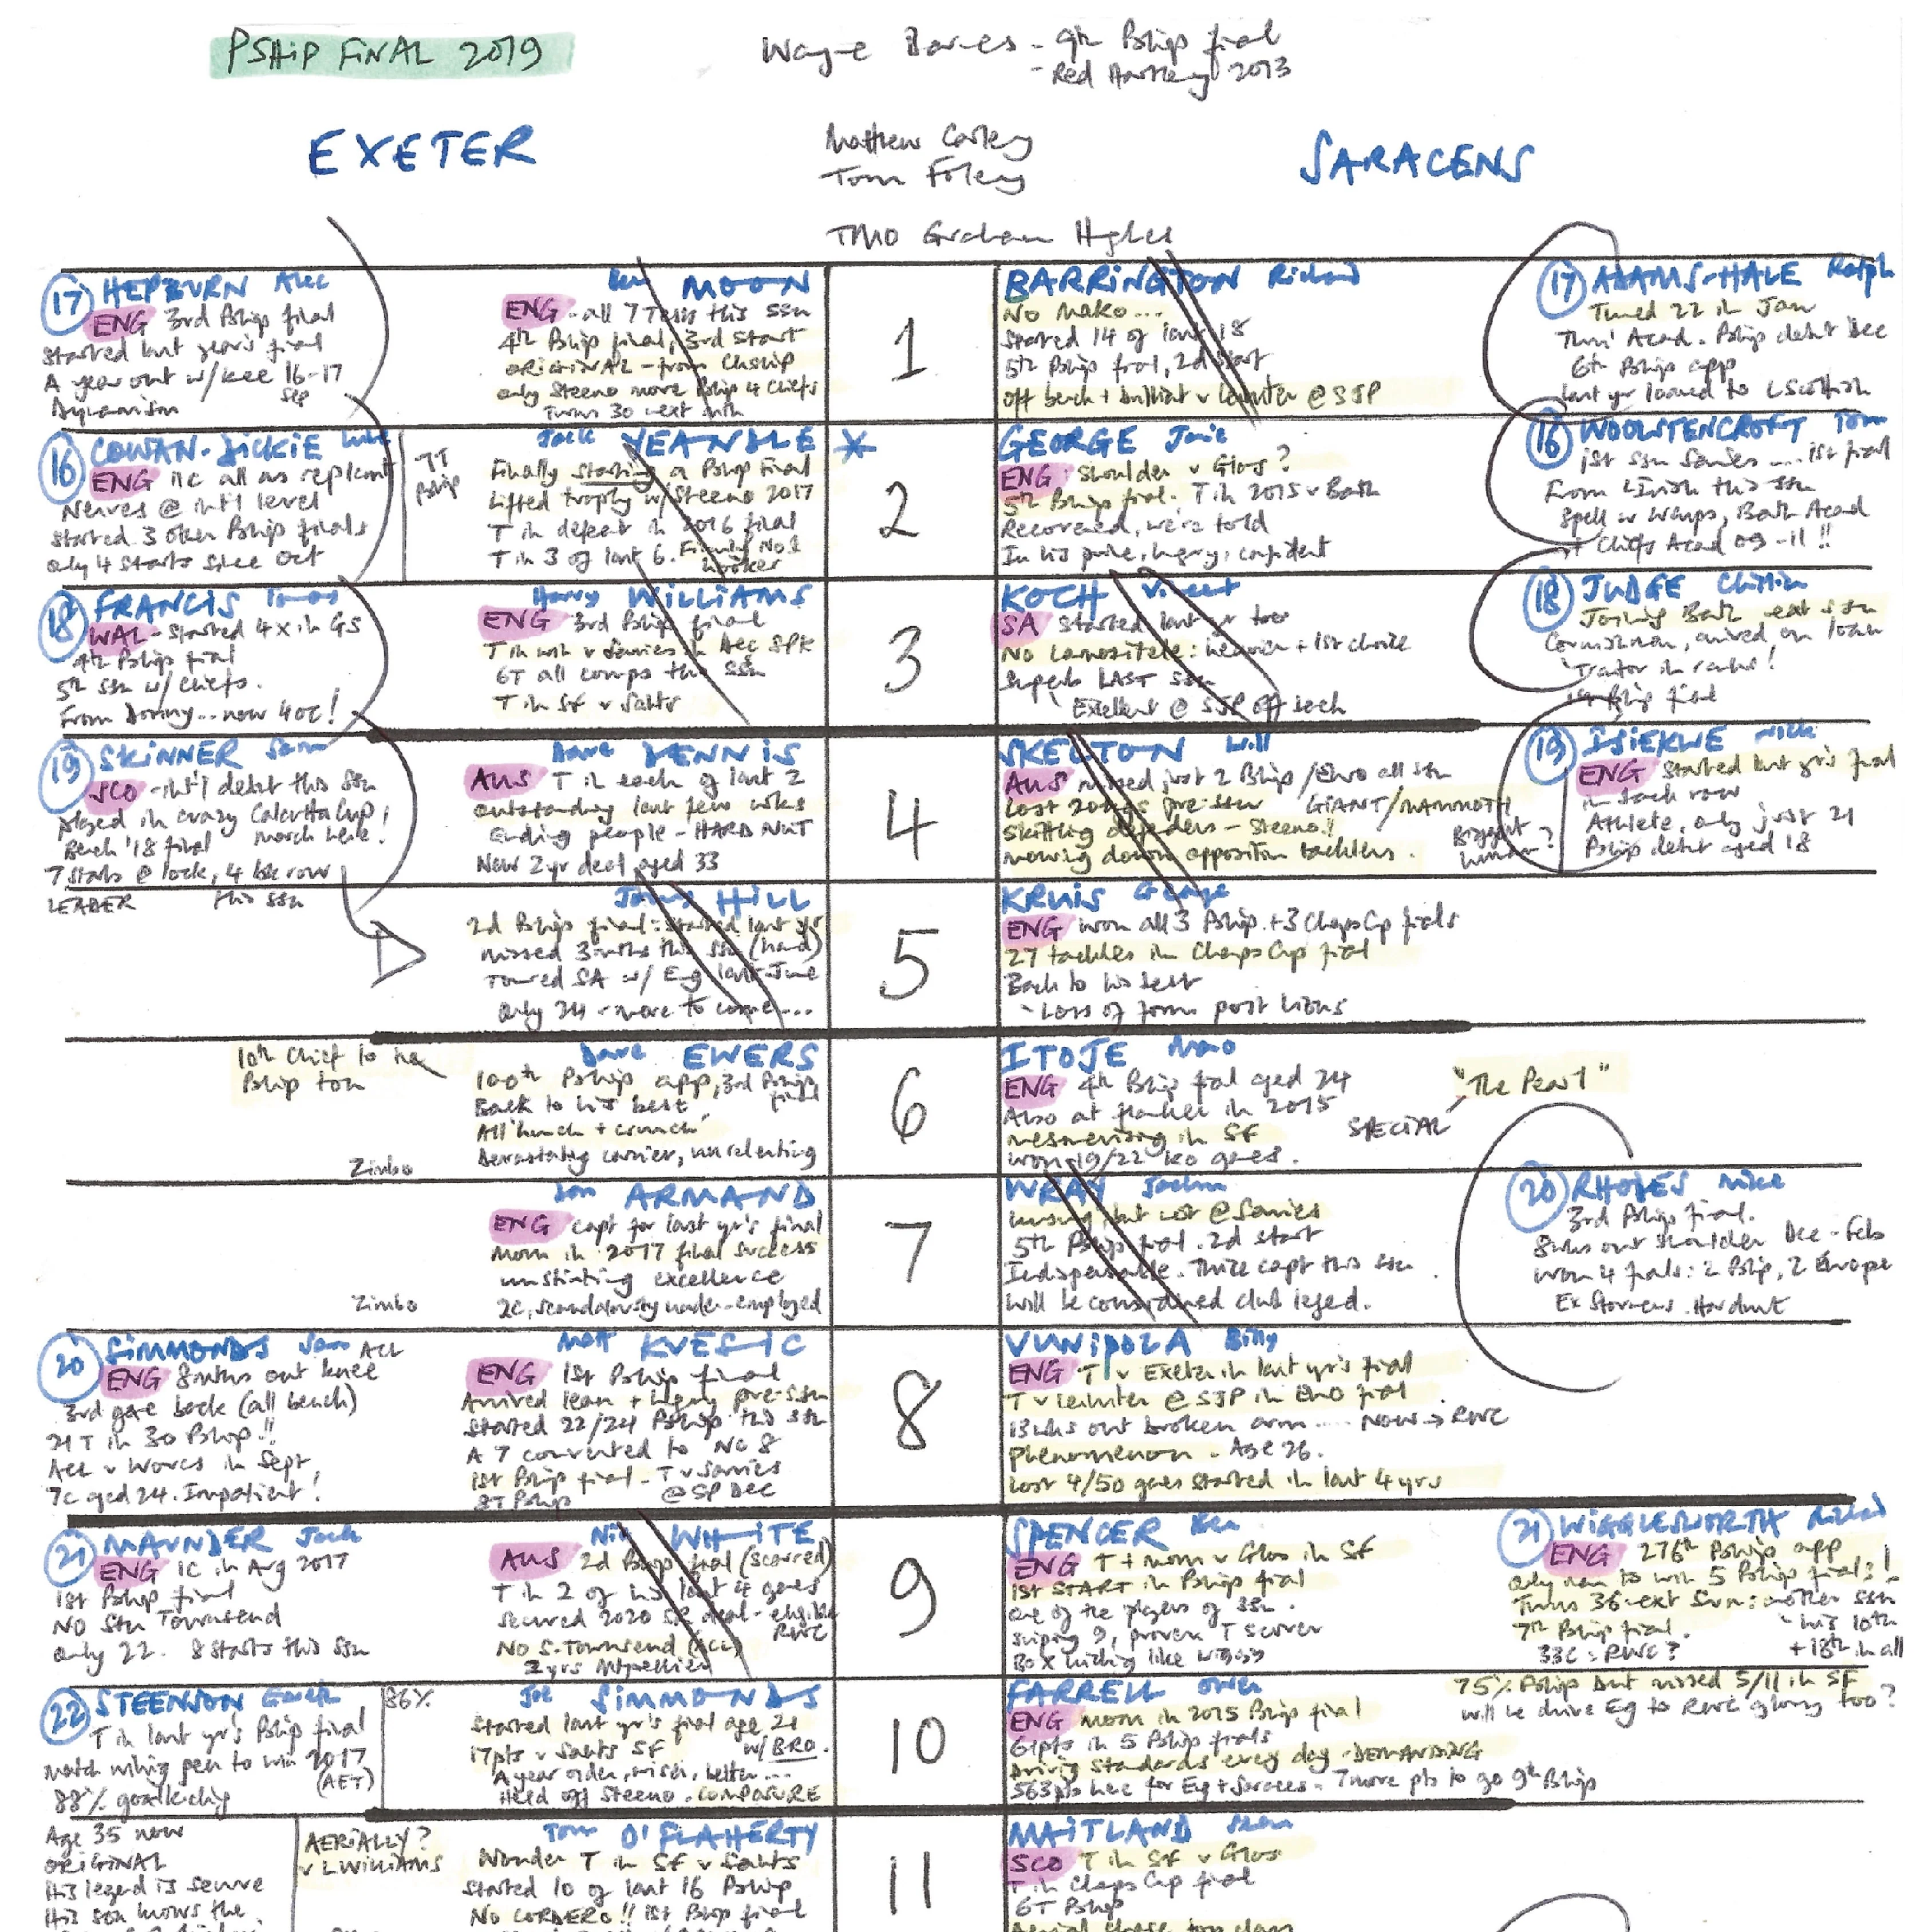 PSHIP FINAL 2019
Wayne Barnes - 9th Pship final
- Red Hartley 2013
EXETER
Matthew Carley
Tom Foley
SARACENS
TMO Graham Hughes
17 HEPBURN Alec
ENG 3rd Pship final
Started last year's final
A year out w/ knee 16-17
Sep
Dynamism
Ben MOON
ENG - all 7 Tests this ssn
4th Pship final, 3rd start
ORIGINAL - from Chship
only Steeno more Pship 4 Chiefs
Turns 30 next mth
1
BARRINGTON Richard
No Mako...
Started 14 of last 18
5th Pship final, 2d start
off bench + brilliant v Leinster @ SJP
17 ADAMS-HALE Ralph
Turned 22 in Jan
Thru' Acad. Pship debut Dec
6th Pship app
last yr loaned to L Scottish
16 COWAN-DICKIE Luke
ENG 11c all as replcmt
Nerves @ int'l level
Started 3 other Pship finals
only 4 starts since Oct
7T
Pship
Jack YEANDLE *
Finally starting a Pship final
Lifted trophy w/ Steeno 2017
T in defeat in 2016 final
T in 3 of last 6. Firmly No 1
hooker
2
GEORGE Jamie
ENG shoulder v Glos?
5th Pship final. T in 2015 v Bath
Recovered, we're told
In his prime, hungry, confident
16 WOOLSTENCROFT Tom
1st ssn Sarries .... 1st final
From L Irish this ssn
Spell w Wasps, Bath Acad
+ Chiefs Acad 09-11!!
18 FRANCIS Tomas
WAL - Started 4x in GS
4th Pship final
5th ssn w/ Chiefs.
From Donny... now 40c!
Harry WILLIAMS
ENG 3rd Pship final
T in win v Sarries in Dec SPK
6T all comps this ssn
T in SF v Saints
3
KOCH Vincent
SA started last yr too
No Lamositele: Heroic + 1st choice
Superb LAST ssn
Excellent @ SJP off bench
18 JUDGE Christian
Joining Bath next ssn
Cornishman, arrived on loan
'Traitor in ranks!
1st Pship final
19 SKINNER Sam
SCO - int'l debut this ssn
played in crazy Calcutta Cup
Bench '18 final March here!
7 starts @ lock, 4 bk row
LEADER this ssn
Dave DENNIS
AUS T in each of last 2
outstanding last few wks
Ending people - HARD NUT
New 2yr deal aged 33
4
SKELTON Will
AUS missed just 2 Pship/Euro all ssn
Lost 20kgs pre-ssn GIANT/MAMMOTH
Skittling defenders - Steeno!!
mowing down opposition tacklers.
Biggest
human?
19 ISIEKWE Nick
ENG Started last yr's final
in back row
Athlete, only just 21
Pship debut aged 18
Jonny HILL
2d Pship final: started last yr's
missed 3 mths this ssn (hand)
Toured SA w/ Eng last June
only 24 - more to come...
5
KRUIS George
ENG won all 3 Pship + 3 Champs Cup finals
27 tackles in Champs Cup final
Back to his best
- Loss of form post Lions
10th Chief to 100
Pship ton
Zimbo
Dave EWERS
100th Pship app, 3rd Pship
final
Back to his best
All 'hunch + crunch'
Devastating carrier, unrelenting
6
ITOJE Maro
ENG 4th Pship final aged 24
Also at flanker in 2015
mesmerising in SF
won 19/22 KO games.
SPECIAL
"The Pearl"
Zimbo
Don ARMAND
ENG capt for last yr's final
MOM in 2017 final success
unstinting excellence
2c, scandalously under-employed
7
WRAY Jackson
unsung, but not @ Sarries
5th Pship final. 2d start
Indispensable. Thrice capt this ssn
will be considered club legend.
20 RHODES Mike
3rd Pship final.
8wks out shoulder Dec-Feb
won 4 finals: 2 Pship, 2 Europe
Ex Stormers. Hardnut
20 SIMMONDS Sam ACL
ENG 8mths out knee
3rd game back (all bench)
21T in 30 Pship!!
ACL v Worcs in Sept
7c aged 24. Impatient!
Matt KVESIC
ENG 1st Pship final
Arrived lean + hungry pre-ssn
Started 22/24 Pship this ssn
A 7 converted to No 8
1st Pship final - T v Sarries
8T Pship @ SP Dec
8
VUNIPOLA Billy
ENG T v Exeter in last yr's final
T v Leinster @ SJP in Euro final
13wks out broken arm .... NOW → RWC
Phenomenon. Age 26.
Lost 4/50 games started in last 4 yrs
21 MAUNDER Jack
ENG 1c in Arg 2017
1st Pship final
No Stu Townsend
only 22. 8 starts this ssn
Nic WHITE
AUS 2d Pship final (scarred)
T in 2 of his last 4 games
secured 2020 SR deal - eligible
RWC
No S. Townsend (ACL)
3yrs Mtpellier
9
SPENCER Ben
ENG T + MOM v Glos in SF
1st START in Pship final
one of the players of ssn.
sniping 9, proven T scorer
Box kicking like Wiggy
21 WIGGLESWORTH Richard
ENG 276th Pship app
only man to win 5 Pship finals!
Turns 36 next Sun: another ssn
7th Pship final. - his 10th
33c: RWC? + 18th in all
22 STEENSON Gareth
T in last yr's Pship final
match winning pen to win 2017
(AET)
88% goalkicking
86%
Joe SIMMONDS
Started last yr's final age 21
17pts v Saints SF w/ BRO.
A year older, wiser, better...
Held off Steeno. COMPOSURE
10
FARRELL Owen
ENG MOM in 2015 Pship final
61pts in 5 Pship finals
Driving standards every day - DEMANDING
563pts here for Eng + Saracens - 7 more pts to go 9th Pship
75% Pship but missed 5/11 in SF
will he drive Eg to RWC glory too?
Age 35 now
ORIGINAL
His legend is secure
His son knows the
AERIALLY?
v L WILLIAMS
Tom O'FLAHERTY
Wonder T in SF v Saints
Started 10 of last 16 Pship
No CORDERO!! 1st Pship final
11
MAITLAND Sean
SCO T in SF v Glos
T in Champs Cup final
6T Pship